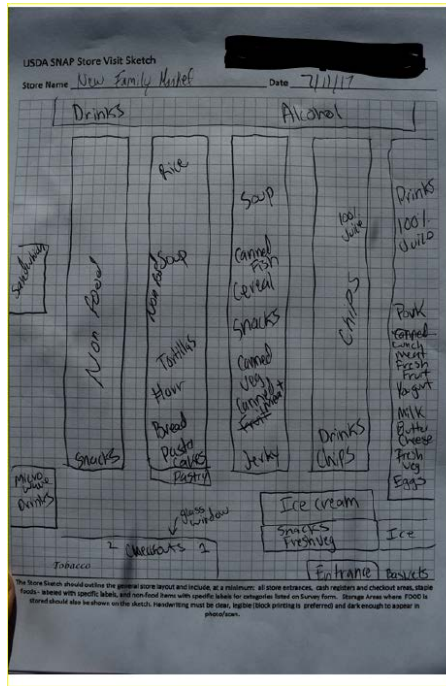 USDA SNAP Store Visit Sketch
Store Name New Family Market Date 7/11/17
Drinks
Alcohol
Sandwich
Non Food
Snacks
Rice
Soup
Non Food
Tortillas
Flour
Bread
Pasta
Cakes
Pastry
Soup
Canned
Fish
Cereal
Snacks
Canned
Veg
Canned
Fruit
Meat
Jerky
100%
Juice
Chips
Drinks
Chips
Drinks
100%
Juice
Pork
Canned
Lunch
meat
Fresh
Fruit
Yogurt
Milk
Butter
Cheese
Fresh
Veg
Eggs
Micro
wave
Drinks
glass
window
2 Checkouts 1
Tobacco
Ice cream
Snacks
Fresh Veg
Ice
Entrance
Baskets
The Store Sketch should outline the general store layout and include, at a minimum: all store entrances, cash registers and checkout areas, staple
foods - labeled with specific labels, and non-food items with specific labels for categories listed on Survey form. Storage Areas where FOOD is
stored should also be shown on the sketch. Handwriting must be clear, legible (block printing is preferred) and dark enough to appear in
photo/scan.